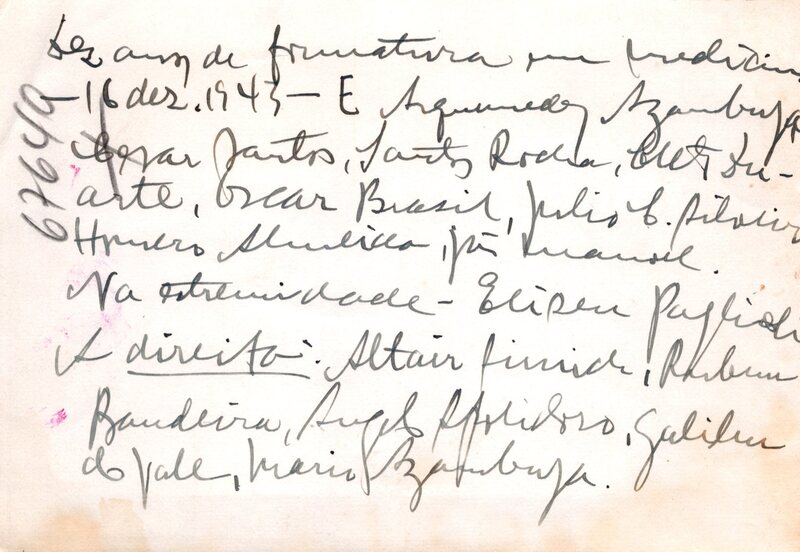 Dez anos de formatura em medicina
-16 dez. 1943- E Arquimedes Azambuja
Cezar Santos, Santos Rocha, Du-
arte, Oscar Brasil, Julio C.
Homero Almeida, José Manoel.
Na estremidade - Eliseu Paglioli
A direita: Altair, Rubem
Bandeira, Angelo, Galileu
do Vale, Mario Azambuja.